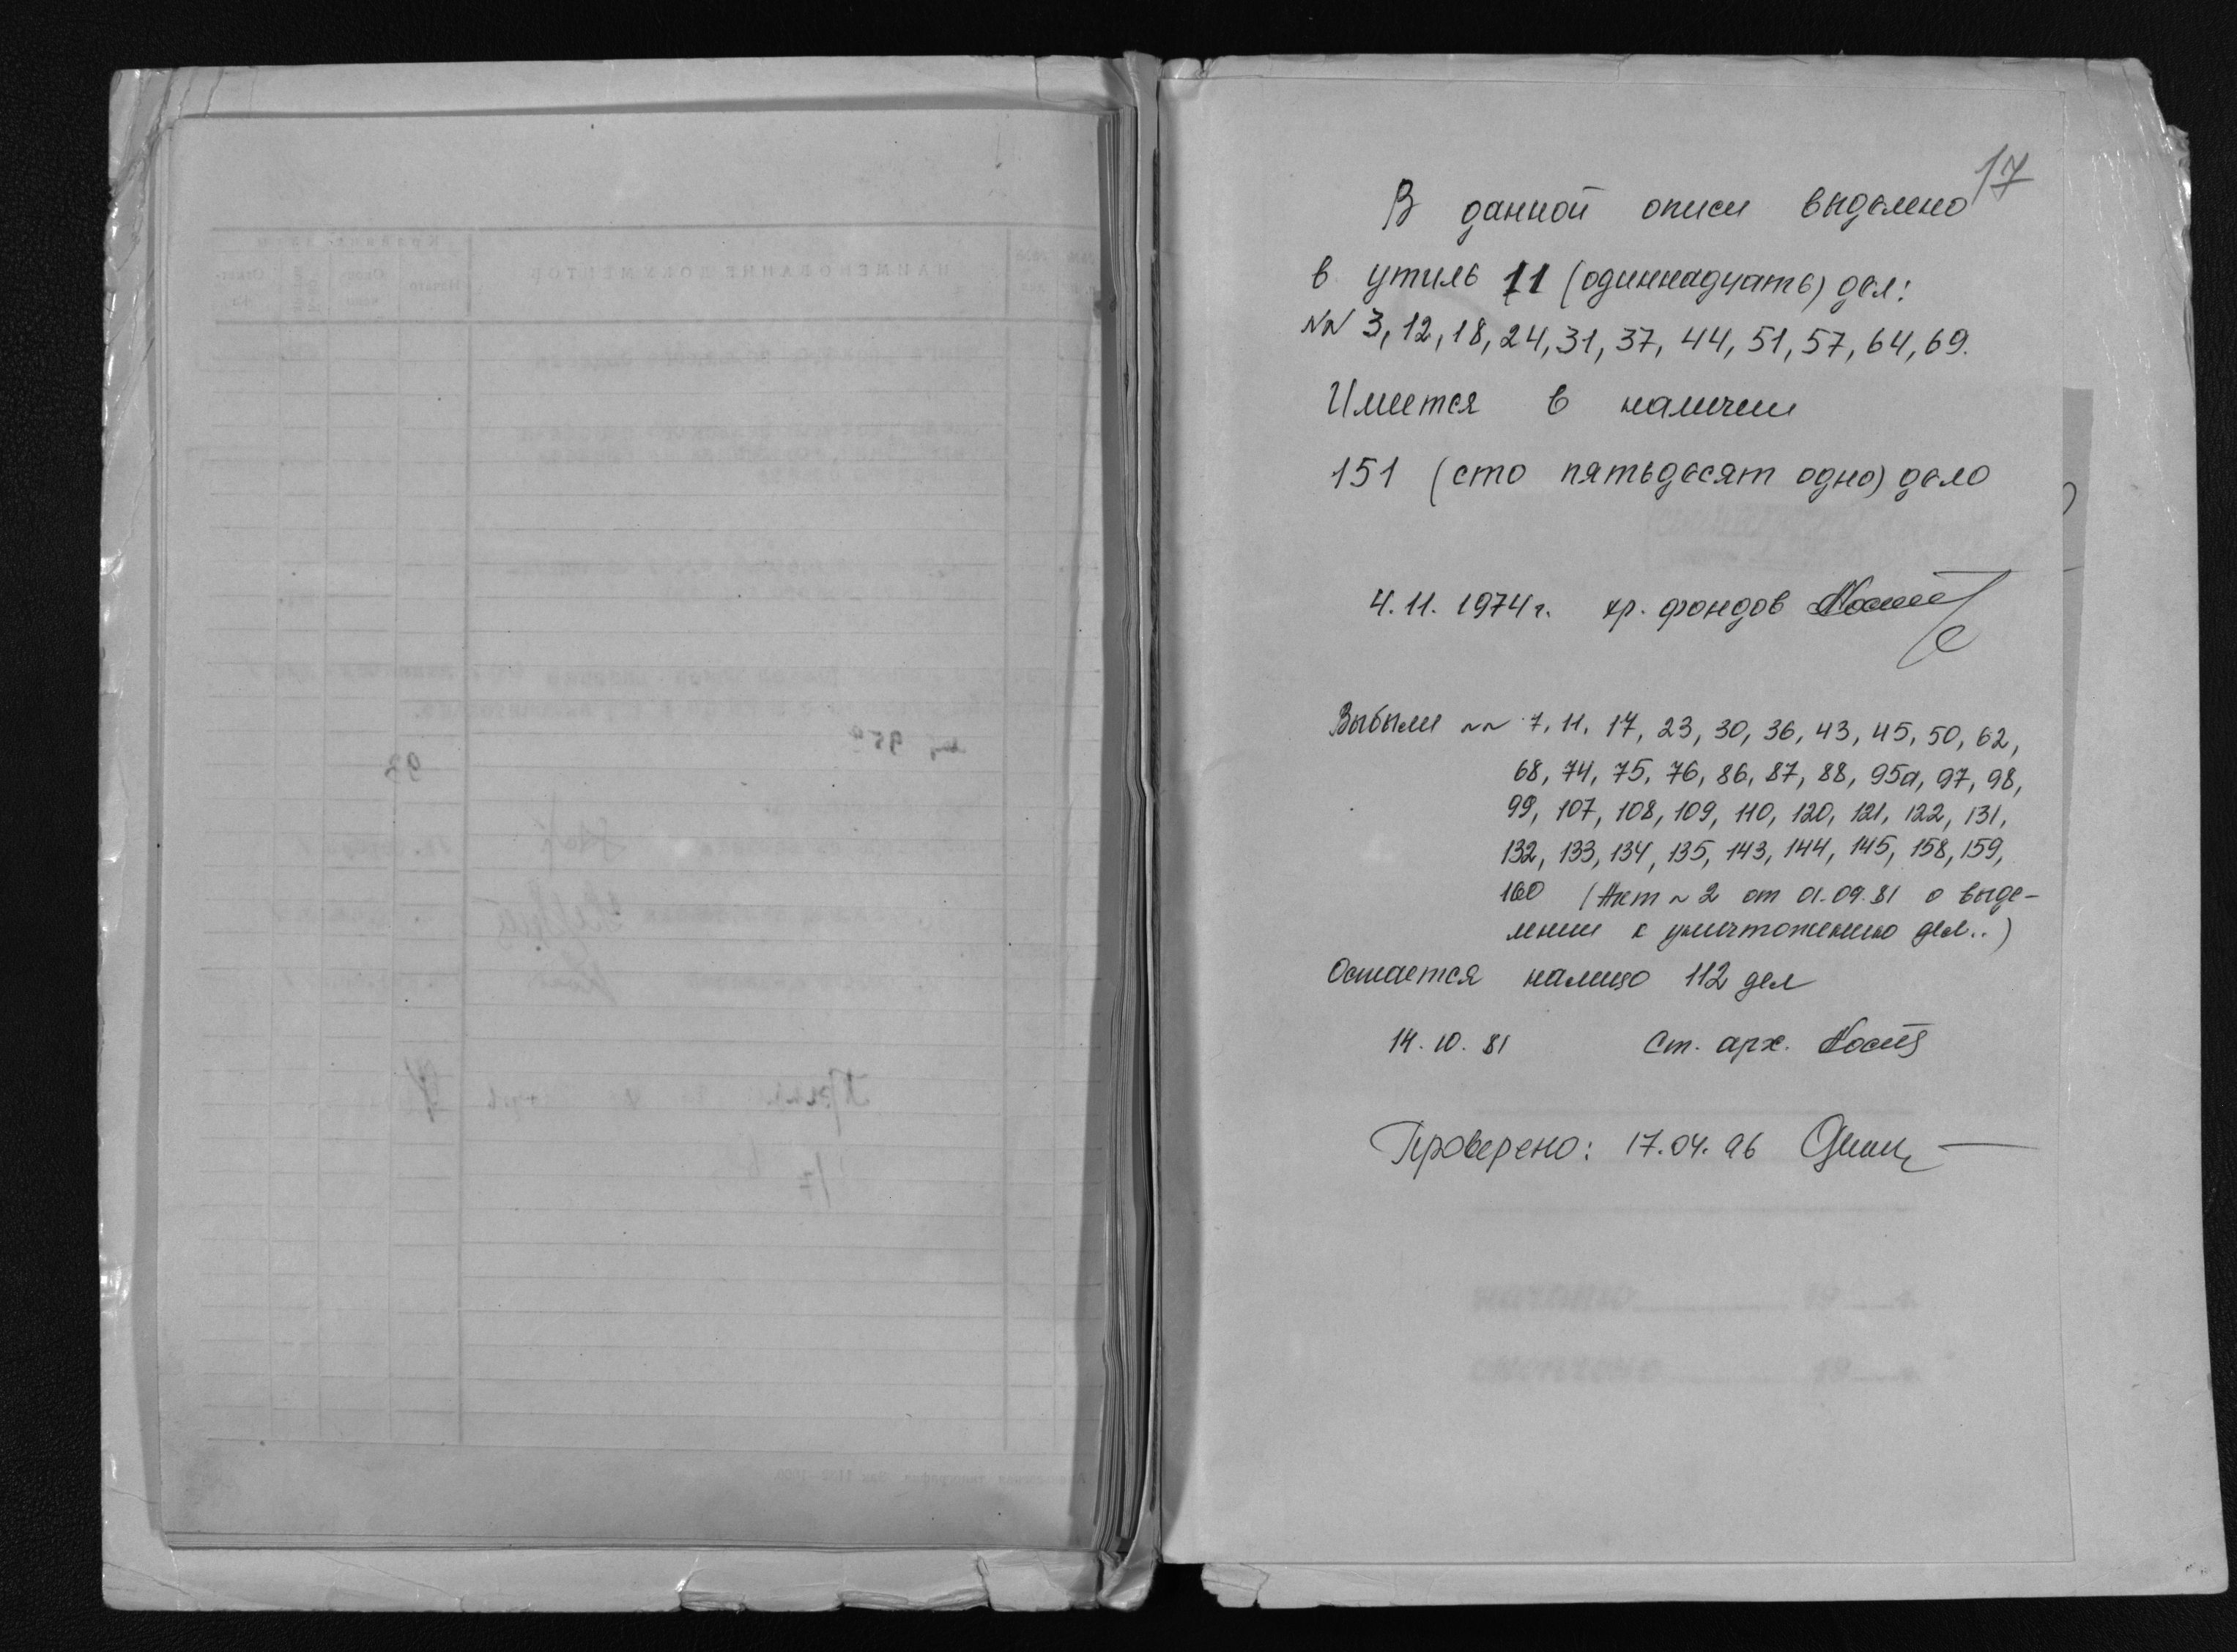 17
В данной описи выделено
в утиль 11 (одиннадцать) дел:
NN 3, 12, 18, 24, 31, 37, 44, 51, 57, 64, 69.
Имеется в наличии
151 (сто пятьдесят одно) дело
4.11.1974г. хр. фондов
Выбыли NN 7, 11, 17, 23, 30, 36, 43, 45, 50, 62,
68, 74, 75, 76, 86, 87, 88, 95а, 97, 98,
99, 107, 108, 109, 110, 120, 121, 122, 131,
132, 133, 134, 135, 143, 144, 145, 158, 159,
160 (Акт N 2 от 01.09.81 о выде-
лении к уничтожению дел..)
Остается налицо 112 дел
14.10.81 Ст. арх.
Проверено: 17.04.96